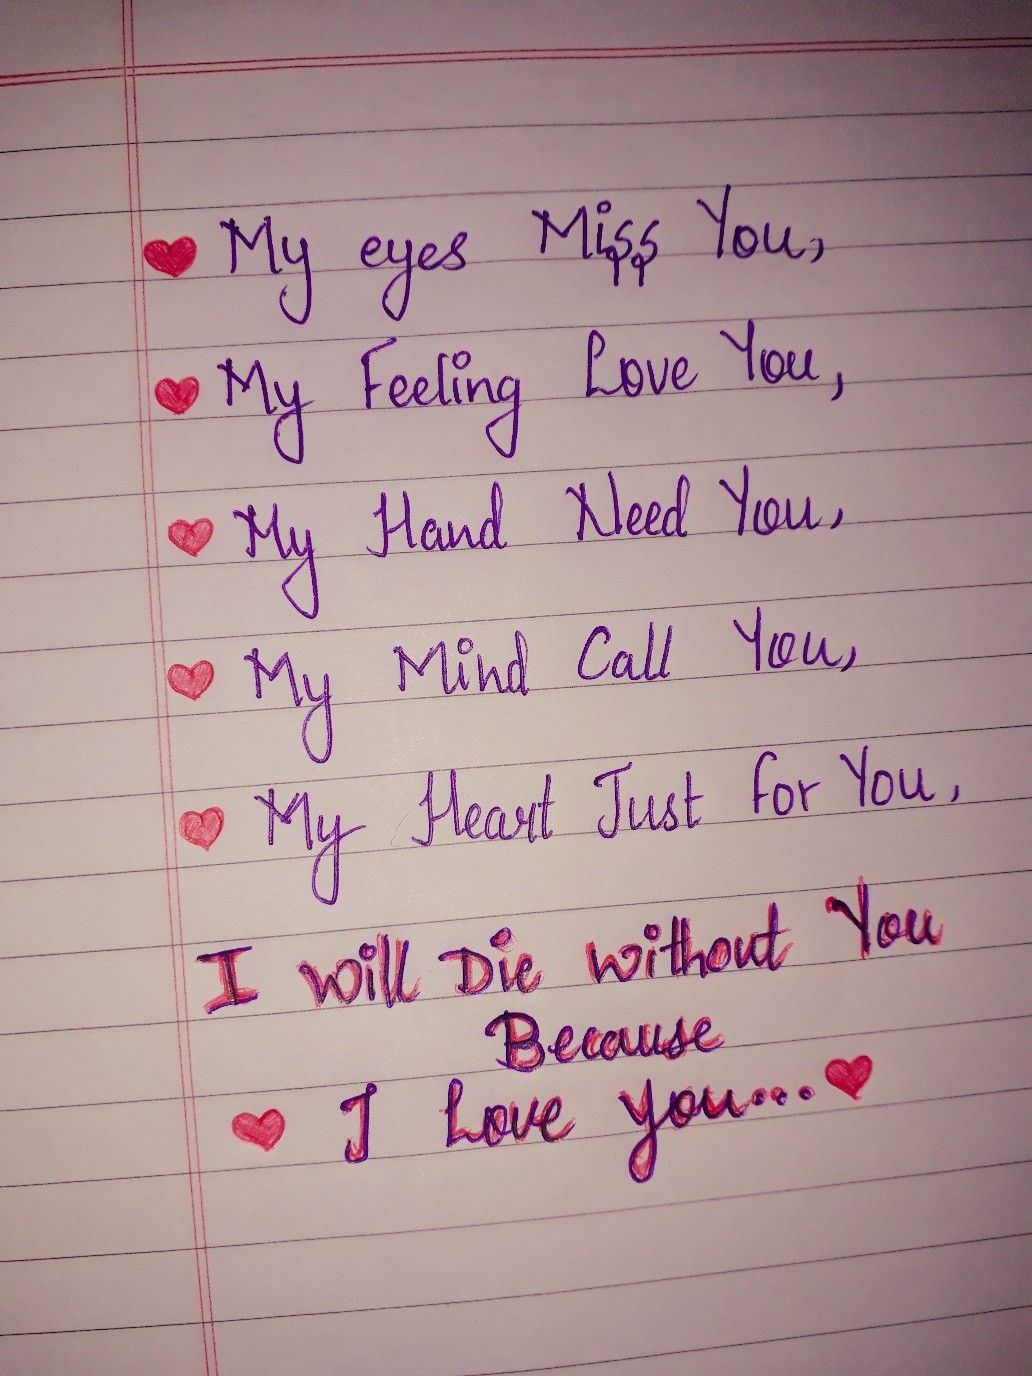 My eyes Miss You,
My Feeling Love You,
My Hand Need You,
My Mind Call You,
My Heart Just for You,
I will Die without You
Because
I Love you...